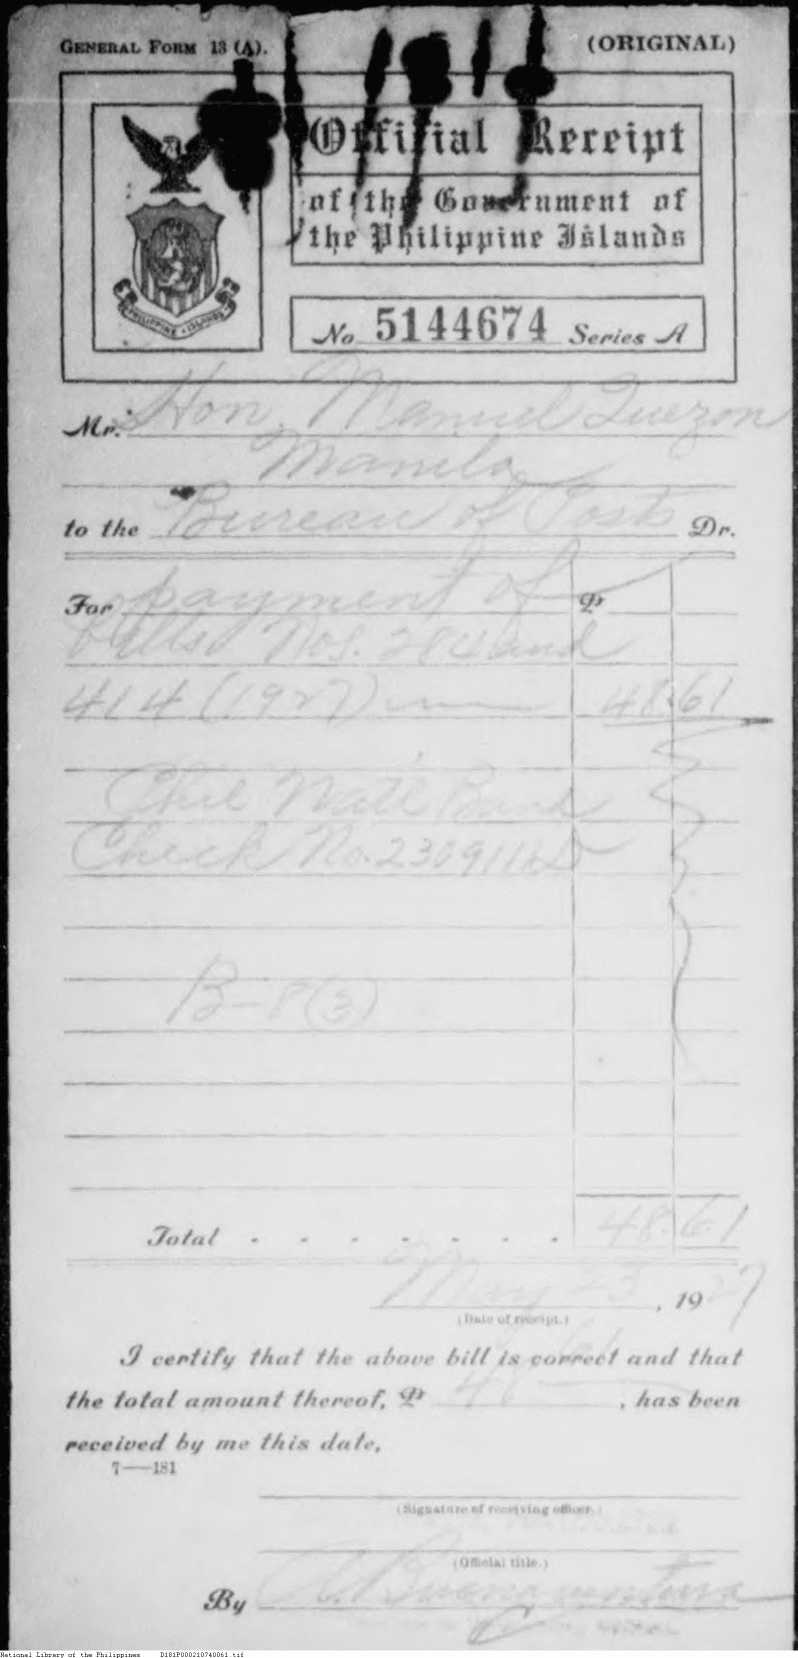 GENERAL FORM 13 (A).
(ORIGINAL)
Official Receipt
of the Government of
the Philippine Islands
PHILIPPINE ISLANDS
No 5144674 Series A
Mr. Hon. Manuel Quezon
Manila
to the Bureau of Posts Dr.
For payment of ₱
bills Nos. 284 and
414 (1927) 48.61
Phil Natl Bank
Check No. 230911
B-8(3)
Total . . . . . . . 48.61
May 23, 1927
(Date of receipt.)
I certify that the above bill is correct and that
the total amount thereof, ₱ 48.61, has been
received by me this date.
7—181
(Signature of receiving officer.)
(Official title.)
By A. Buenaventura
National Library of the Philippines D181P000210740061.tif